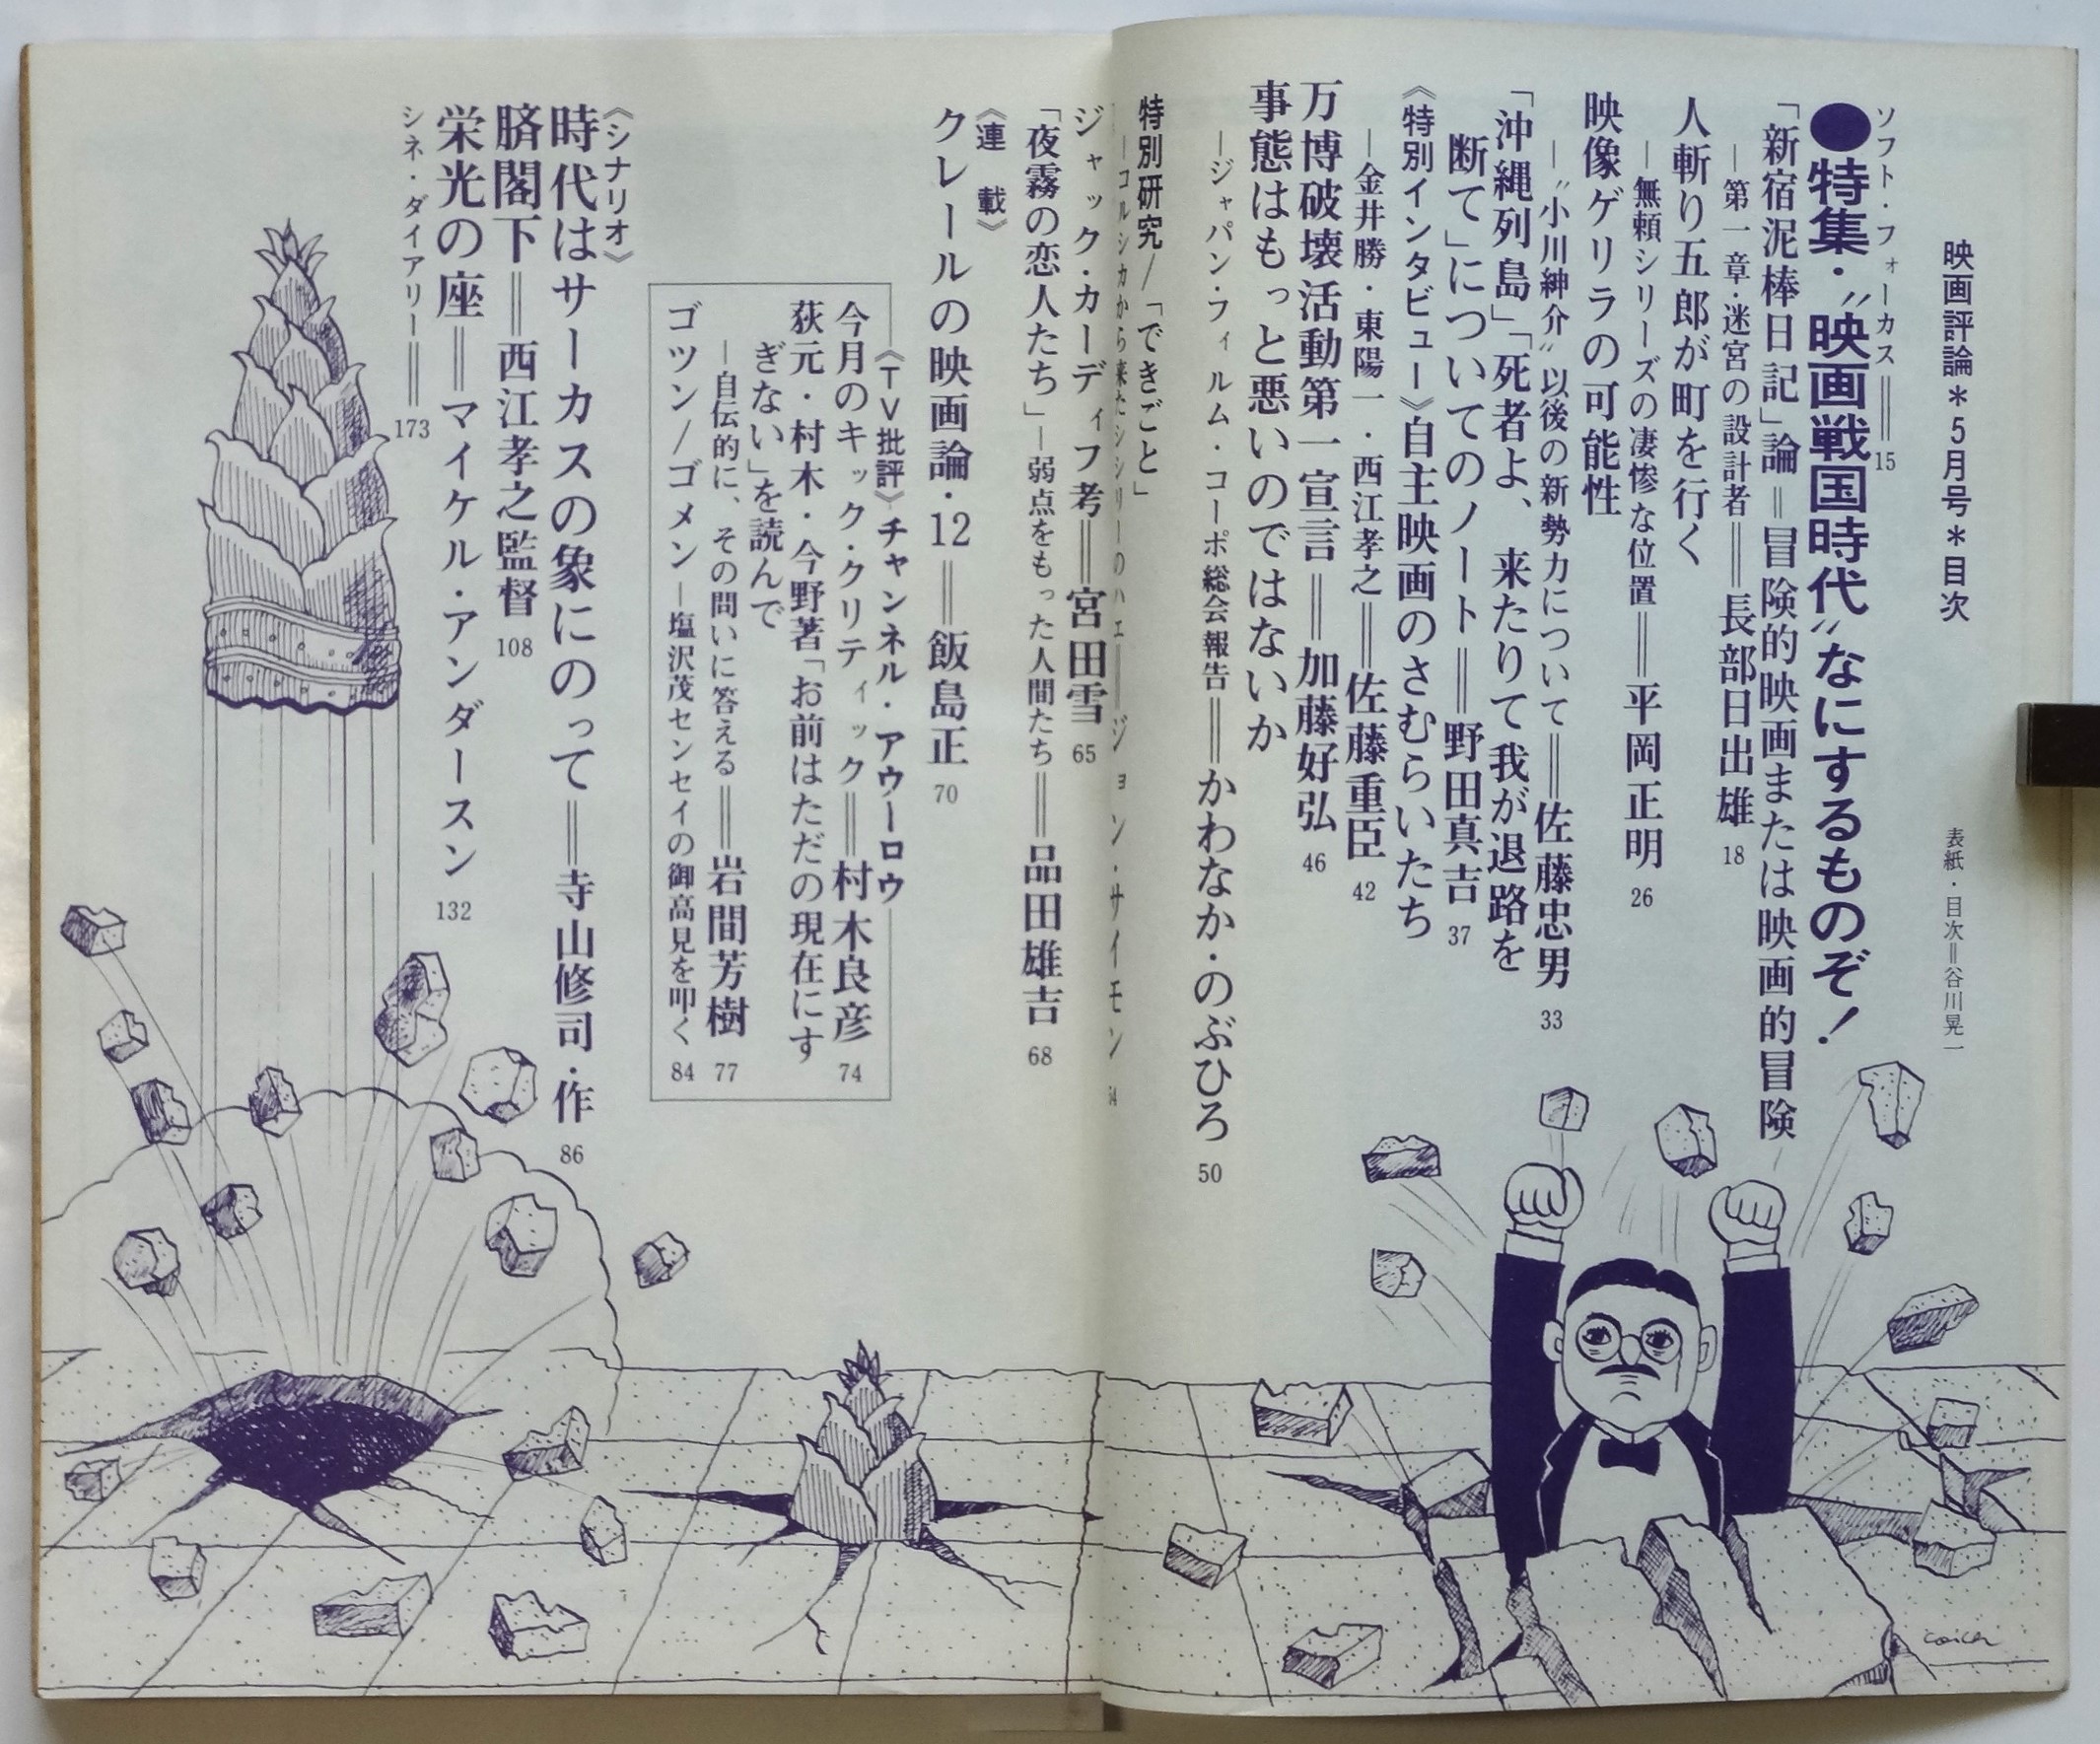 映画評論＊5月号＊目次
表紙・目次＝谷川晃一
ソフト・フォーカス＝15
●特集・〝映画戦国時代〟なにするものぞ！
「新宿泥棒日記」論＝冒険的映画または映画的冒険
―第一章・迷宮の設計者＝長部日出雄 18
人斬り五郎が町を行く
―無頼シリーズの凄惨な位置＝平岡正明 26
映像ゲリラの可能性
―〝小川紳介〟以後の新勢力について＝佐藤忠男 33
「沖縄列島」「死者よ、来たりて我が退路を
断て」についてのノート＝野田真吉 37
《特別インタビュー》自主映画のさむらいたち
―金井勝・東陽一・西江孝之＝佐藤重臣 42
万博破壊活動第一宣言＝加藤好弘 46
事態はもっと悪いのではないか
―ジャパン・フィルム・コーポ総会報告＝かわなか・のぶひろ 50
特別研究/「できごと」
―コルシカから来たシシリーのハエ＝ジョン・サイモン 54
ジャック・カーディフ考＝宮田雪 65
「夜霧の恋人たち」―弱点をもった人間たち＝品田雄吉 68
《連載》
クレールの映画論・12＝飯島正 70
《TV批評》チャンネル・アウーロウ
今月のキック・クリティック＝村木良彦 74
荻元・村木・今野著「お前はただの現在にす
ぎない」を読んで
―自伝的に、その問いに答える＝岩間芳樹 77
ゴツン/ゴメン―塩沢茂センセイの御高見を叩く 84
《シナリオ》
時代はサーカスの象にのって＝寺山修司・作 86
臍閣下＝西江孝之監督 108
栄光の座＝マイケル・アンダースン 132
シネ・ダイアリー＝173